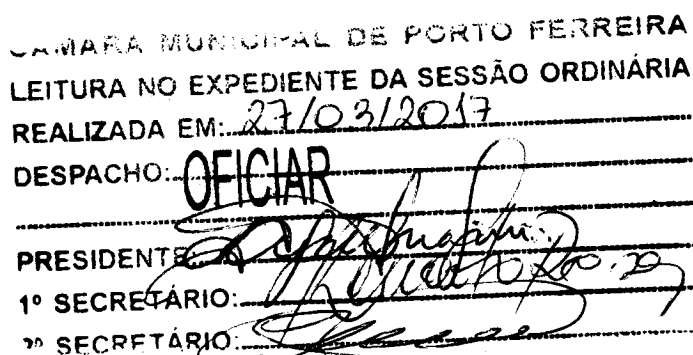 CAMARA MUNICIPAL DE PORTO FERREIRA
LEITURA NO EXPEDIENTE DA SESSÃO ORDINÁRIA
REALIZADA EM: 27/03/2017
DESPACHO: OFICIAR
PRESIDENTE:
1º SECRETÁRIO:
2º SECRETÁRIO: